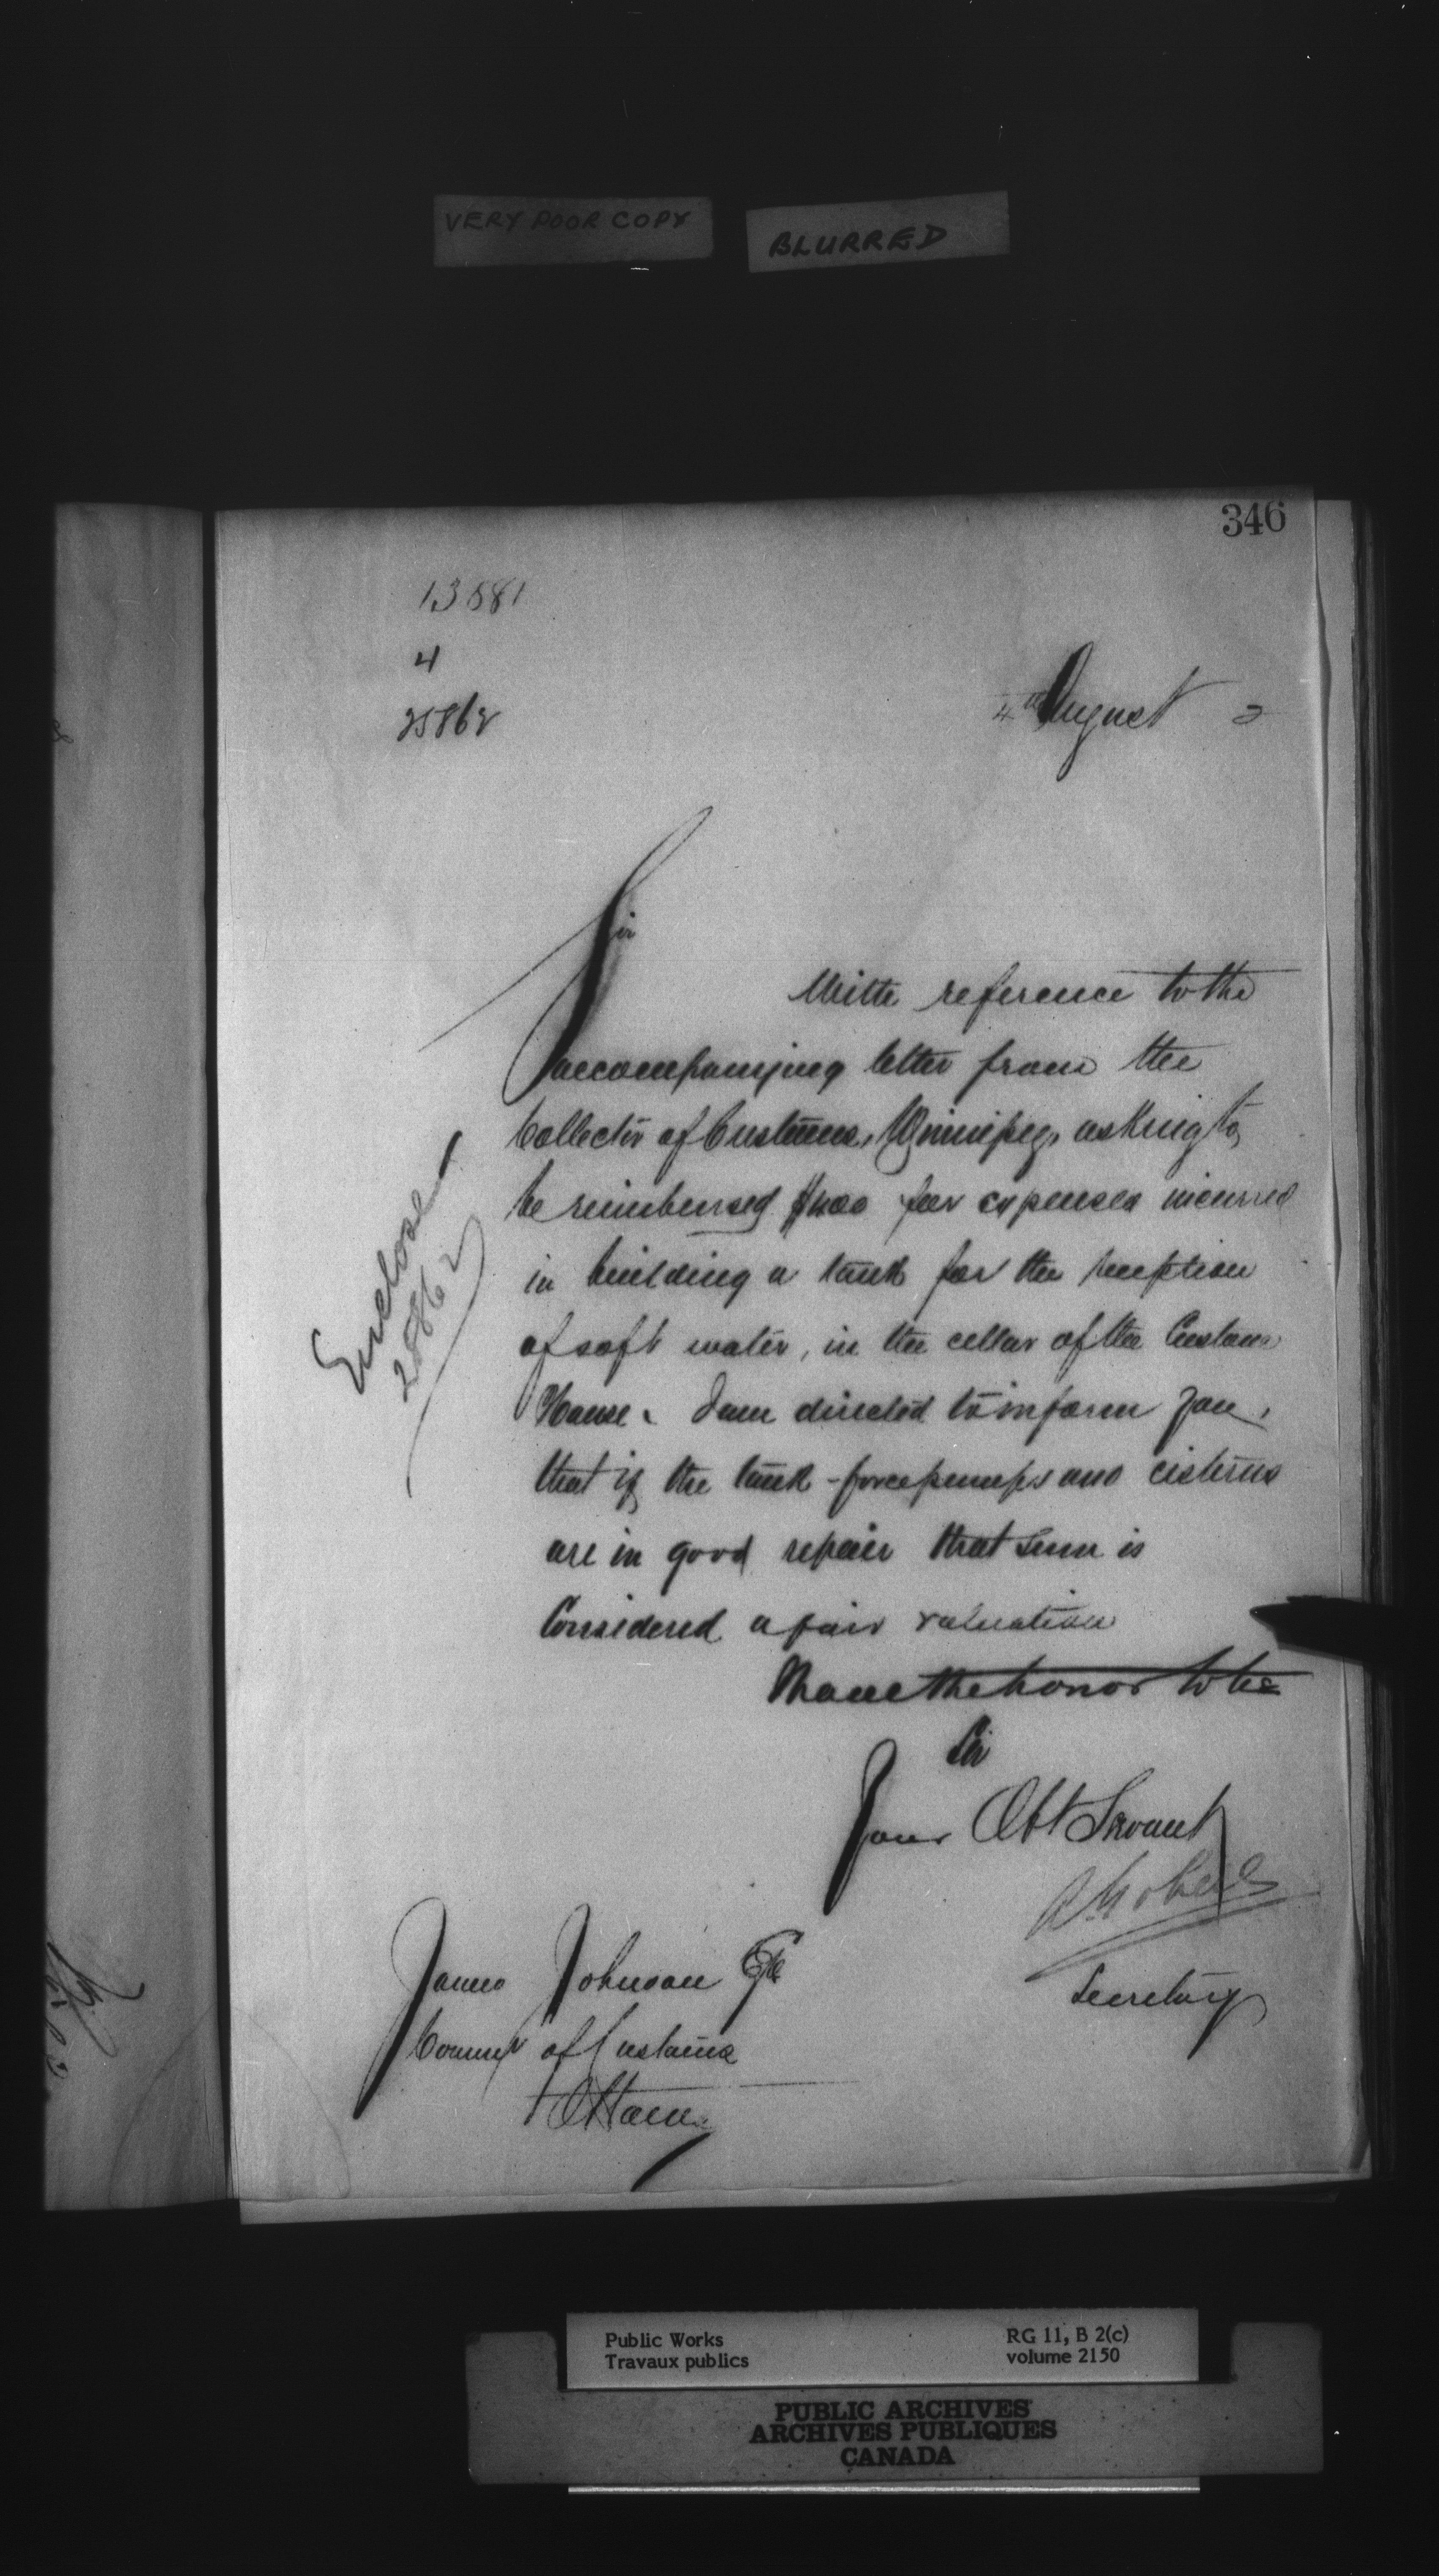 VERY POOR COPY
BLURRED
346
13581
4
25862
4th August 2
Sir
With reference to the
accompanying letter from the
Collector of Customs, Winnipeg, asking to
be reimbursed $400 for expenses incurred
in building a tank for the reception
of soft water, in the cellar of the Custom
House. I am directed to inform you,
that if the tank - force pumps and cisterns
are in good repair that sum is
Considered a fair valuation
I have the honor to be
Sir
Your Obt Servant
Secretary
Enclose
25862
James Johnson Esq
Commr of Customs
Ottawa
Public Works
Travaux publics
RG 11, B 2(c)
volume 2150
PUBLIC ARCHIVES
ARCHIVES PUBLIQUES
CANADA